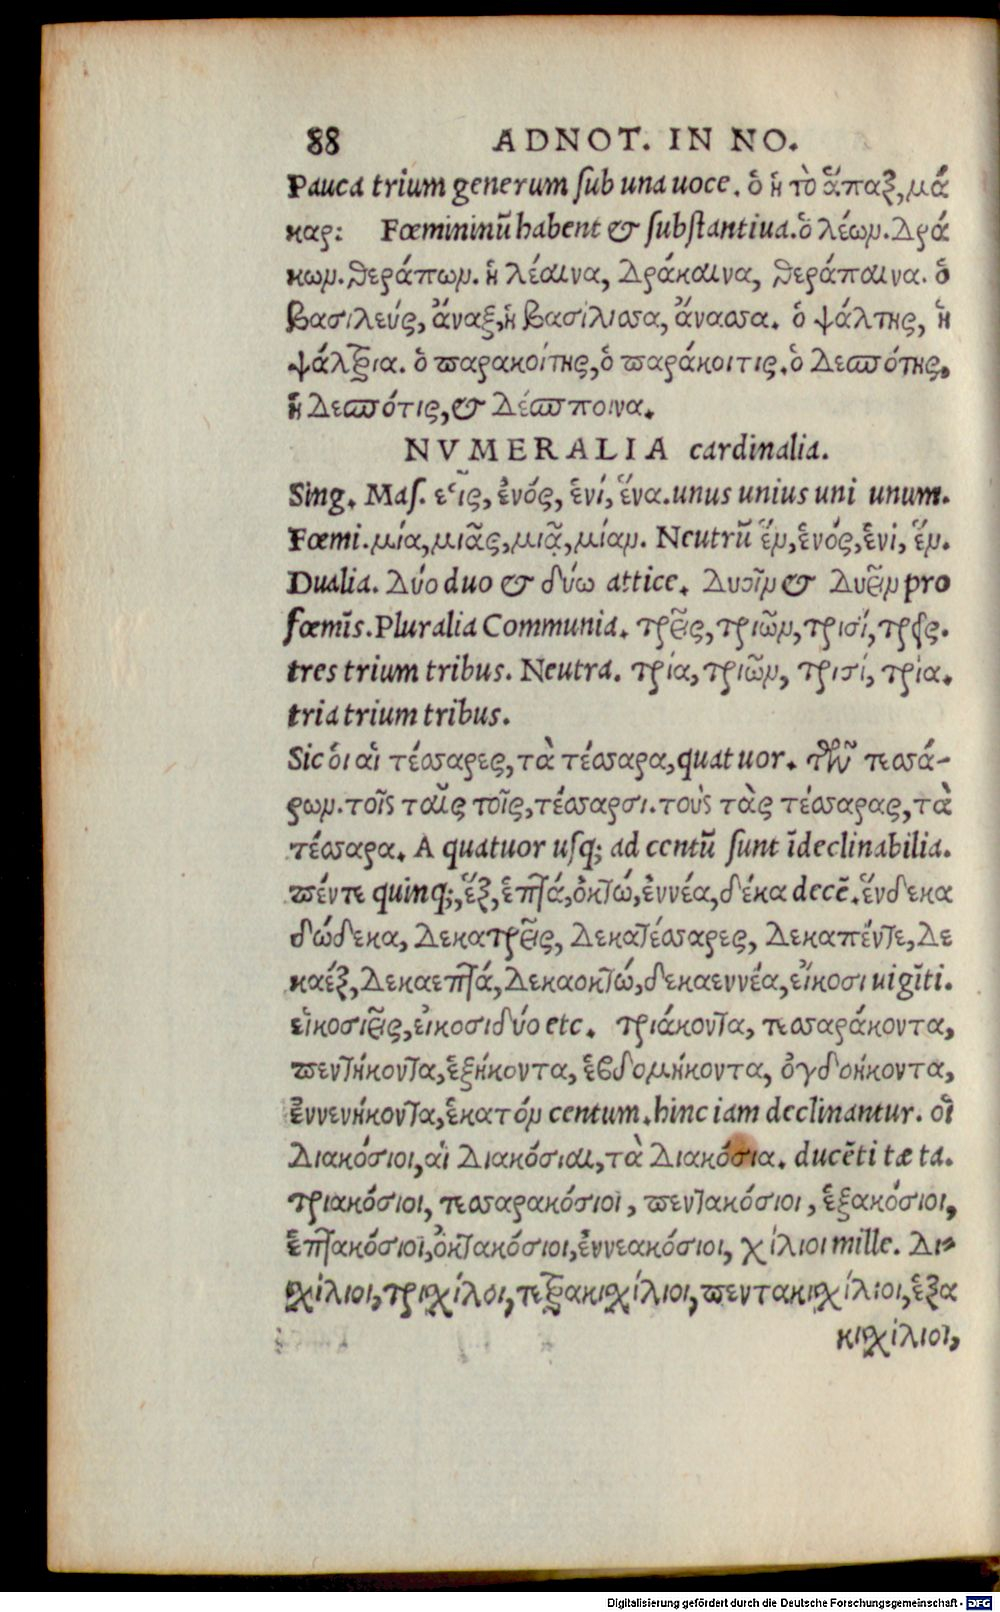 88 ADNOT. IN NO.
Pauca trium generum sub una uoce. ὁ ἡ τὸ ἅπαξ, μά
καρ: Fœmininũ habent & substantiua. ὁ λέων. Δρά
κων. θεράπων. ἡ λέαινα, Δράκαινα, θεράπαινα. ὁ
βασιλεύς, ἄναξ, ἡ βασίλισσα, ἄνασσα. ὁ ψάλτης, ἡ
ψάλτρια. ὁ παρακοίτης, ὁ παράκοιτις. ὁ Δεσπότης,
ἡ Δεσπότις, & Δέσποινα.
NVMERALIA cardinalia.
Sing. Mas. εἷς, ἑνός, ἑνί, ἕνα. unus unius uni unum.
Fœmi. μία, μιᾶς, μιᾷ, μίαν. Neutrũ ἕν, ἑνός, ἑνί, ἕν.
Dualia. Δύο duo & δύω attice. Δυοῖν & Δυεῖν pro
fœmĩs. Pluralia Communia. τρεῖς, τριῶν, τρισί, τρεῖς.
tres trium tribus. Neutra. τρία, τριῶν, τρισί, τρία.
tria trium tribus.
Sic ὁι αἱ τέσσαρες, τὰ τέσσαρα, quatuor. τῶν τεσσά-
ρων. τοῖς ταῖς τοῖς, τέσσαρσι. τοὺς τὰς τέσσαρας, τὰ
τέσσαρα. A quatuor usq; ad centũ sunt ĩdeclinabilia.
πέντε quinq;, ἕξ, ἑπτά, ὀκτώ, ἐννέα, δέκα decẽ. ἕνδεκα
δώδεκα, Δεκατρεῖς, Δεκατέσσαρες, Δεκαπέντε, Δε
καέξ, Δεκαεπτά, Δεκαοκτώ, δεκαεννέα, εἴκοσι uigĩti.
εἰκοσιεῖς, εἰκοσιδύο etc. τριάκοντα, τεσσαράκοντα,
πεντήκοντα, ἑξήκοντα, ἑβδομήκοντα, ὀγδοήκοντα,
ἐννενήκοντα, ἑκατόν centum. hinc iam declinantur. οἱ
Διακόσιοι, αἱ Διακόσιαι, τὰ Διακόσια. ducẽti tæ ta.
τριακόσιοι, τεσσαρακόσιοι, πεντακόσιοι, ἑξακόσιοι,
ἑπτακόσιοι, ὀκτακόσιοι, ἐννεακόσιοι, χίλιοι mille. Δι-
σχίλιοι, τρισχίλοι, τετρακισχίλιοι, πεντακισχίλιοι, ἑξα
κισχίλιοι,
Digitalisierung gefördert durch die Deutsche Forschungsgemeinschaft - DFG